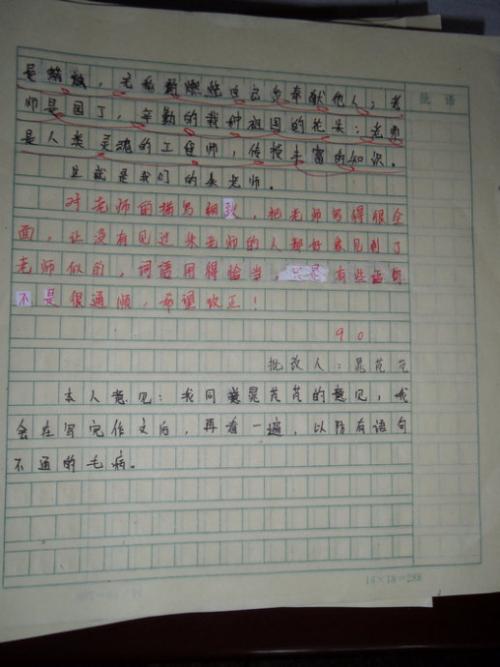 是蜡烛，无私的燃烧自己去奉献他人；老
师是园丁，辛勤的栽种祖国的花朵；老师
是人类灵魂的工程师，传授丰富的知识。
这就是我们的朱老师。
对老师的描写细致，把老师写得很全
面，让没有见过朱老师的人都好象见到了
老师似的，词语用得恰当，只是有些语句
不是很通顺，希望改正！
90
批改人：晁芃芃
本人意见：我同意晁芃芃的意见，我
会在写完作文后，再看一遍，以防有语句
不通的毛病。
16×18=288
批语